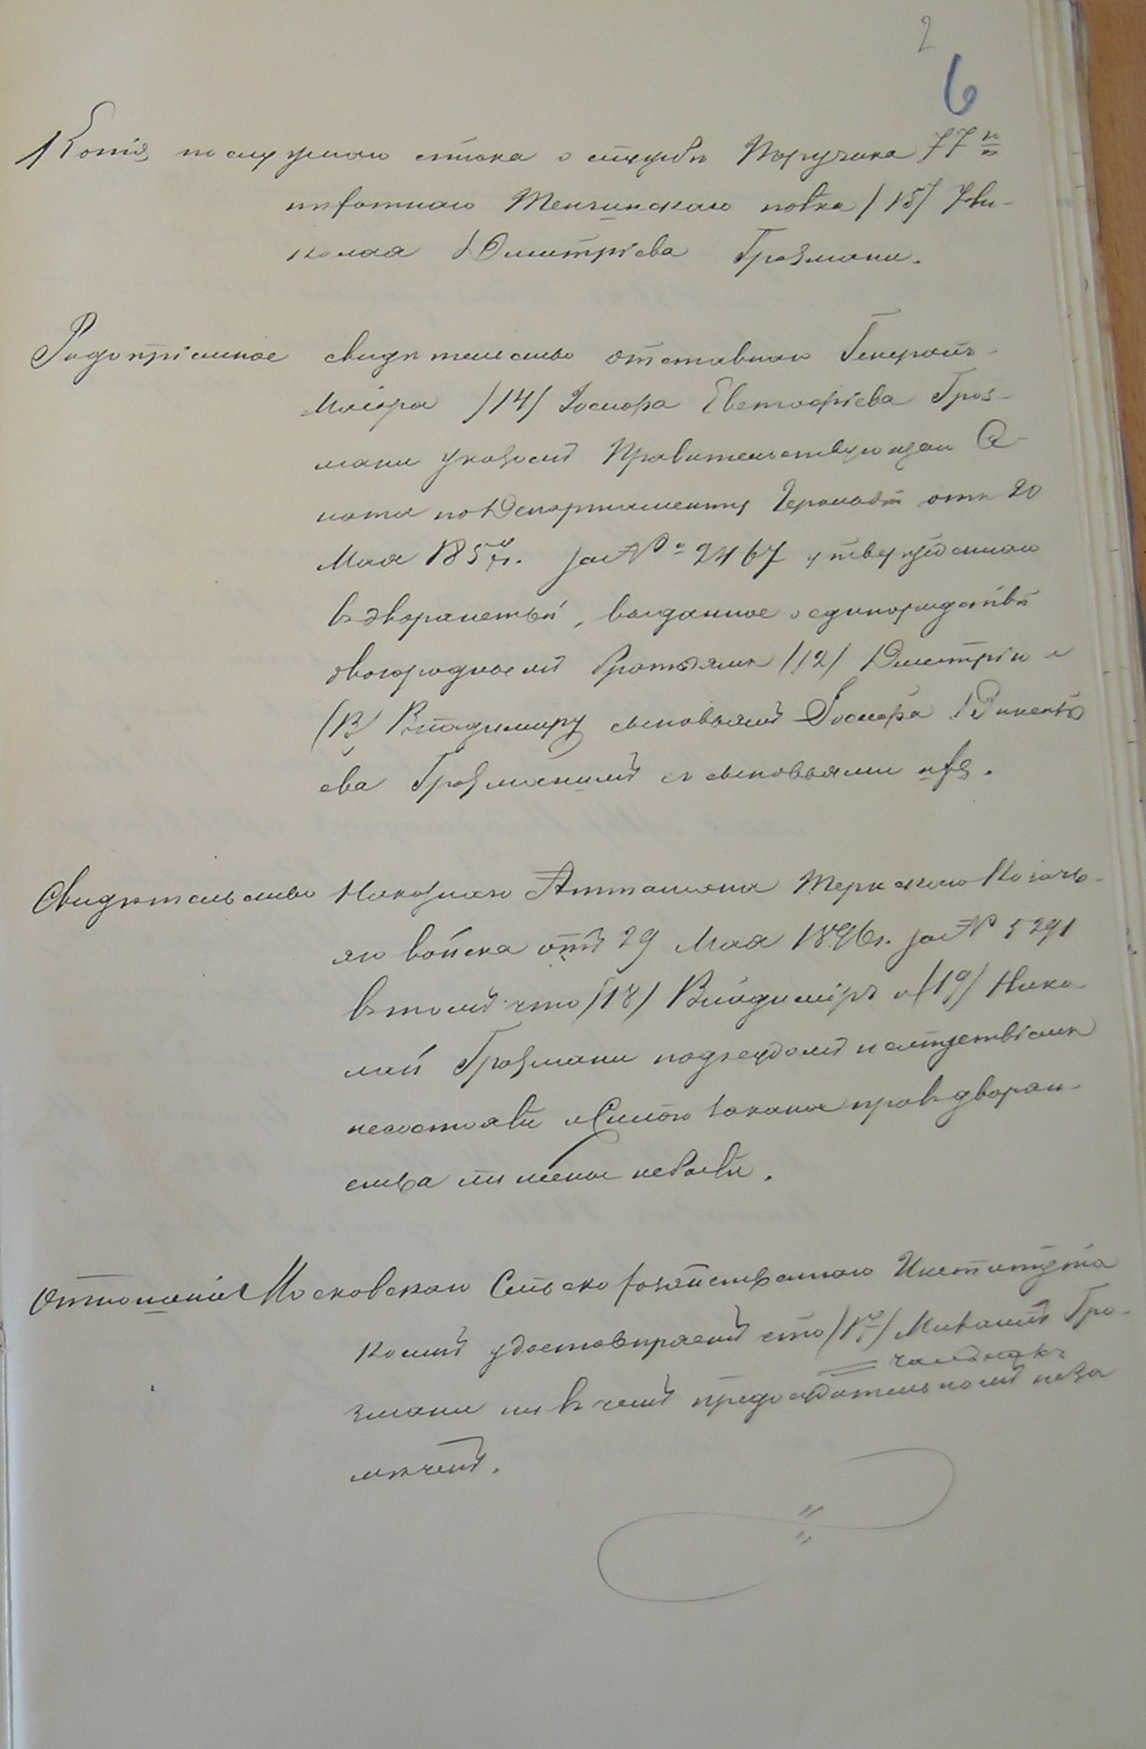 2
6
Копія послужнаго списка о службѣ Поручика 77го
пѣхотнаго Тенгинскаго полка /15/ Ни-
колая Дмитріева Грозмани.
Родопріемное свидѣтельство отставнаго Генералъ-
Маіора /14/ Іосифа Евстафіева Гроз-
мани указомъ Правительствующаго Се-
ната по Департаменту Герольдіи отъ 20
Мая 185 г. за № 2467 утвержденнаго
въ дворянствѣ, выданное о единородствѣ
двоюроднымъ братьямъ /12/ Дмитрію и
/13/ Владимиру сыновьямъ Іосифа Викентьева
Грозманимъ съ сыновьями ихъ.
Свидѣтельство Наказнаго Аттамана Терскаго Казачь-
яго войска отъ 29 Мая 1896 г. за № 5291
въ томъ что /18/ Владиміръ и /19/ Нико
лай Грозмани подъ судомъ и слѣдствіемъ
не состояли и силою закона правъ дворян-
ства лишены не были.
Отношенія Московскаго Сельскохозяйственнаго Института
коимъ удостовѣряемъ что /17/ Михаилъ Гро-
змани ни въ чемъ предосудительномъ не за
мѣченъ.